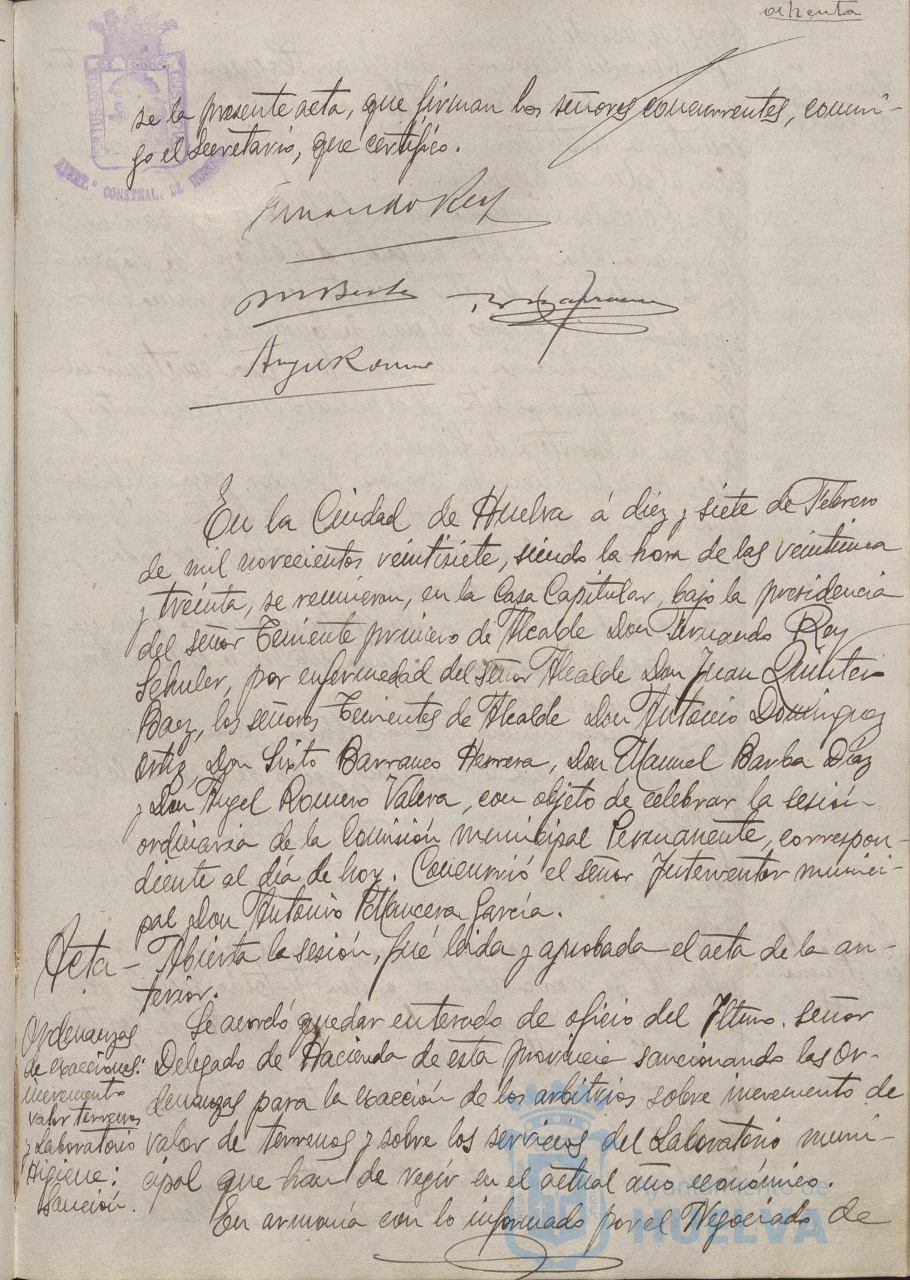 ochenta
se la presente acta, que firman los señores concurrentes, conmi-
go el secretario, que certifico.
Fernando Rey
M Barba
Angel Romero
En la Ciudad de Huelva á diez y siete de Febrero
de mil novecientos veintisiete, siendo la hora de las veintiuna
y treinta, se reunieron, en la Casa Capitular, bajo la presidencia
del señor Teniente primero de Alcalde Don Fernando Rey
Schuler, por enfermedad del señor Alcalde Don Juan Quintero
Baez, los señores Tenientes de Alcalde Don Antonio Dominguez
Ortiz, Don Sixto Barranco Herrera, Don Manuel Barba Díaz
y Don Angel Romero Valera, con objeto de celebrar la sesión
ordinaria de la Comisión municipal Permanente, correspon-
diente al día de hoy. Concurrió el señor Interventor munici-
pal Don Antonio Mancera García.
Acta - Abierta la sesión, fué leida y aprobada el acta de la an-
terior.
Ordenanzas
de exacciones:
incremento
valor terrenos
y Laboratorio
Higiene:
sanción.
Se acordó quedar enterado de oficio del Iltmo. señor
Delegado de Hacienda de esta provincia sancionando las Or-
denanzas para la exacción de los arbitrios sobre incremento de
valor de terrenos y sobre los servicios del Laboratorio muni-
cipal que han de regir en el actual año económico.
En armonía con lo informado por el Negociado de
AYUNT.º CONSTNAL. DE HUELVA
Ayuntamiento de
HUELVA